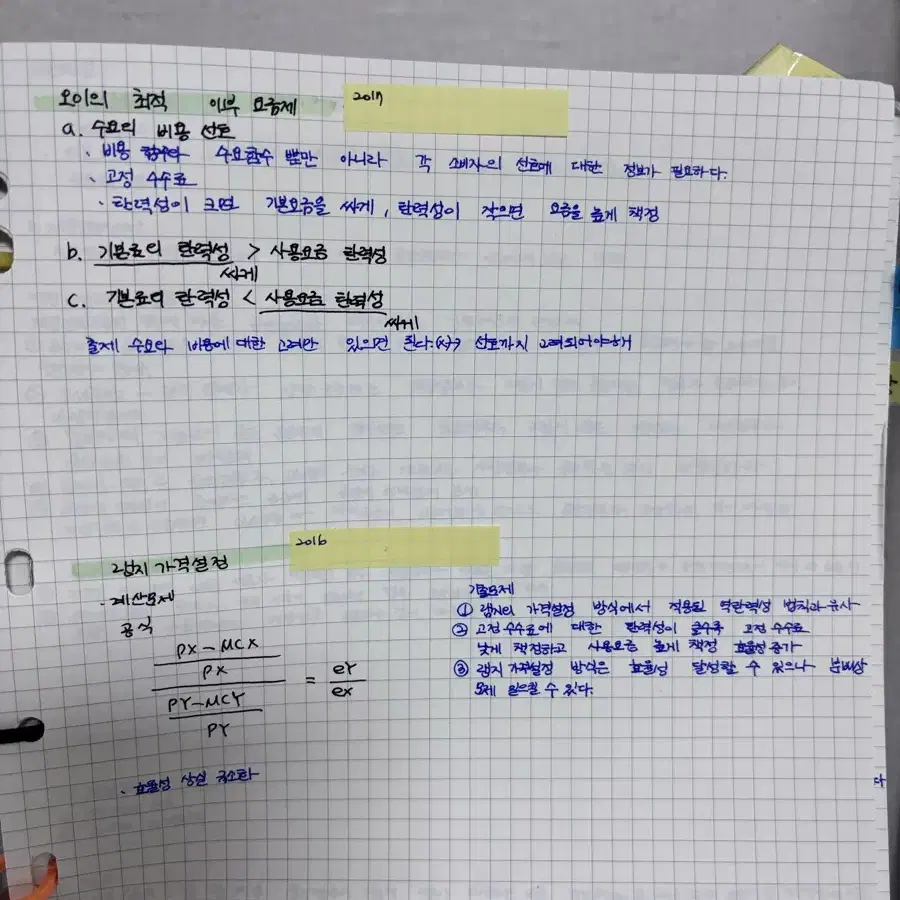 오이의 최적 이부 요금제
2017
a. 수요의 비용 선호
· 비용 함수와 수요함수 뿐만 아니라 각 소비자의 선호에 대한 정보가 필요하다.
· 고정 수수료
· 탄력성이 크면 기본요금을 싸게, 탄력성이 작으면 요금을 높게 책정
b. 기본료의 탄력성 > 사용요금 탄력성
싸게
c. 기본료의 탄력성 < 사용요금 탄력성
싸게
출제 수요와 비용에 대한 고려만 있으면 된다.(x) → 선호까지 고려되어야해
2016
램지 가격설정
· 계산문제
공식
PX - MCX
PX
PY - MCY
PY
= eY
eX
· 효율성 상실 극소화
기출문제
① 램지의 가격설정 방식에서 적용된 역탄력성 법칙과 유사
② 고정수수료에 대한 탄력성이 클수록 고정 수수료
낮게 책정하고 사용요금 높게 책정 효율성 증가
③ 램지 가격설정 방식은 효율성 달성할 수 있으나 분배상
문제 일으킬 수 있다.
다